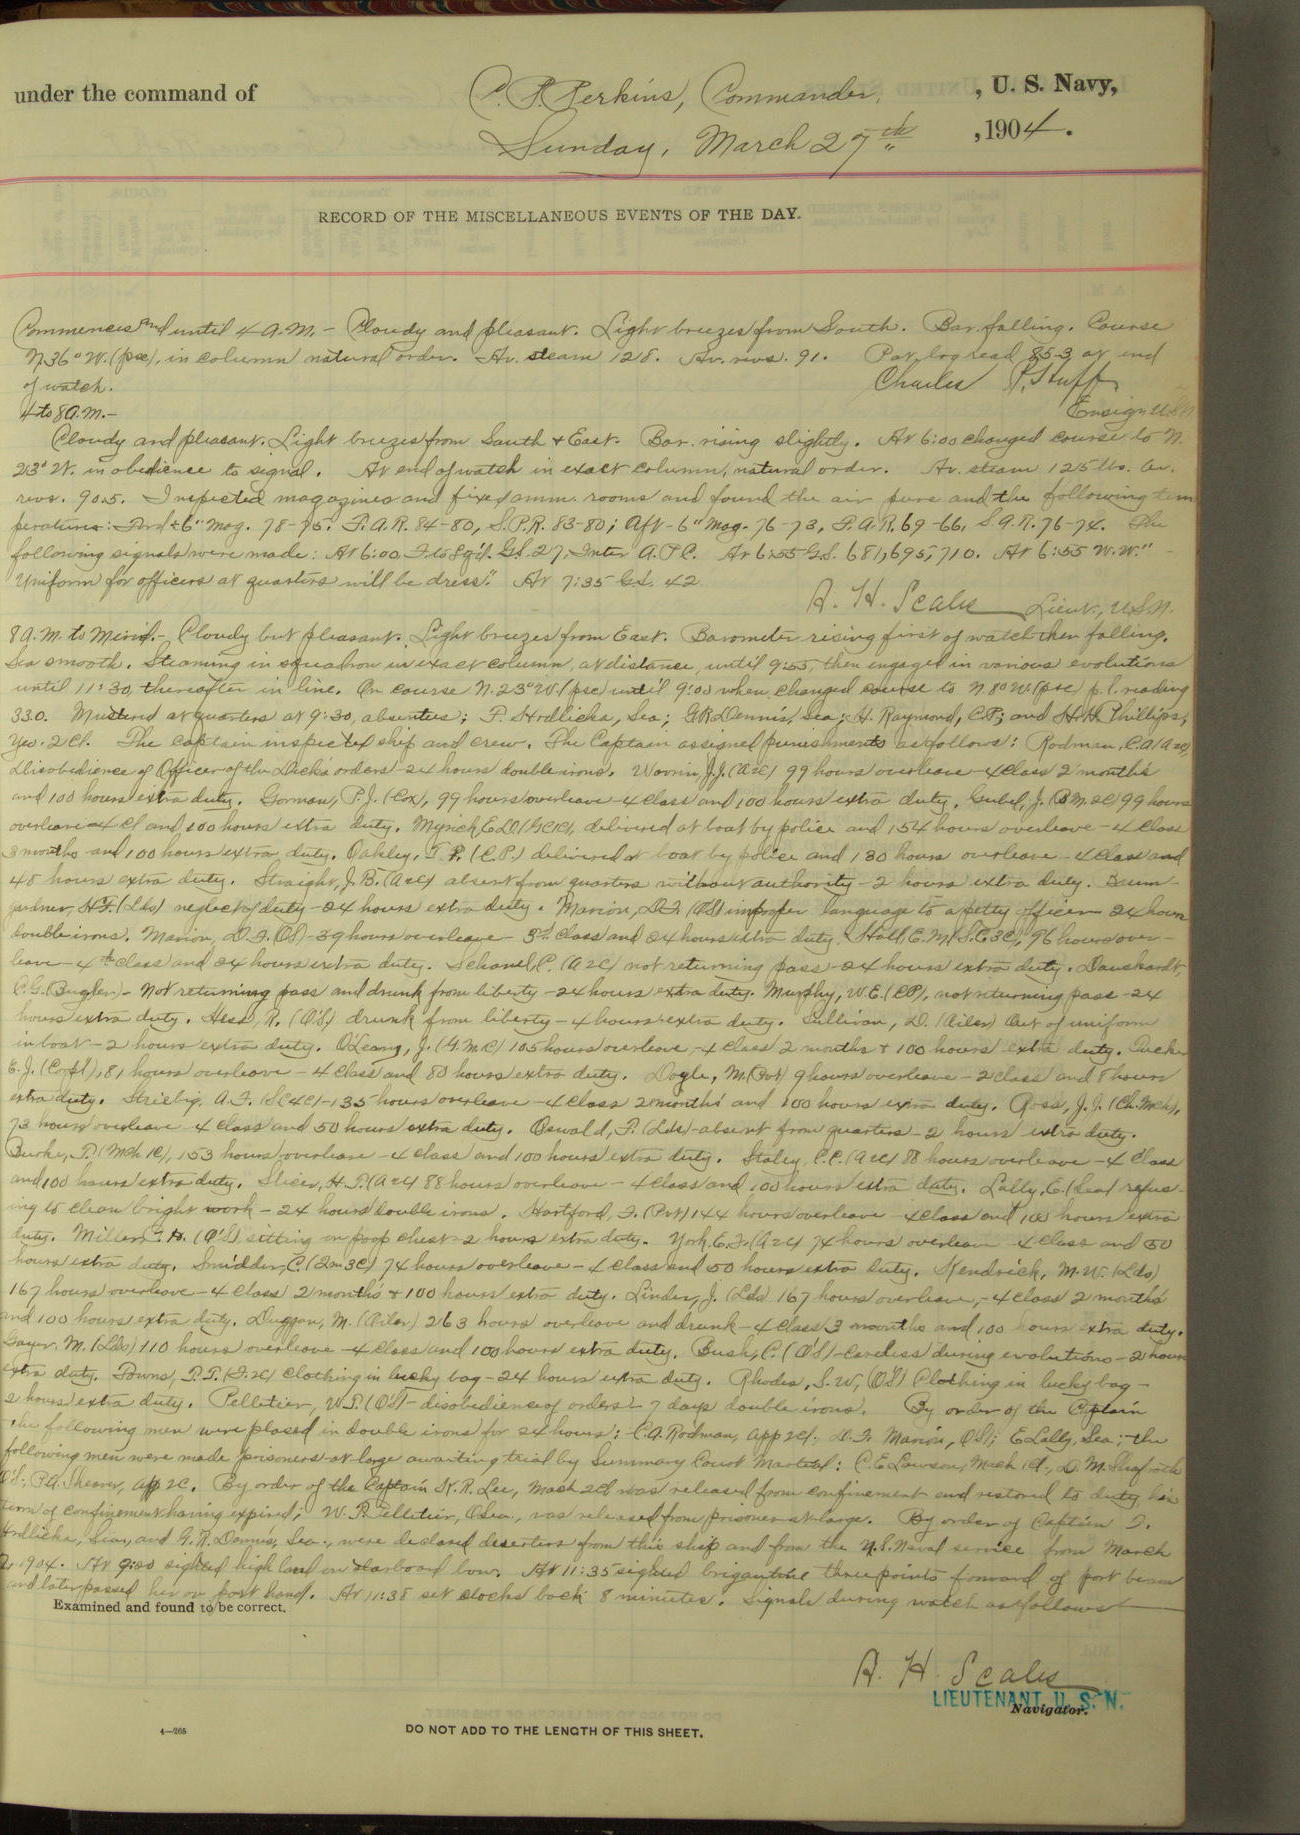 under the command of C. P. Perkins, Commander, , U. S. Navy,
Sunday, March 27th , 1904.
RECORD OF THE MISCELLANEOUS EVENTS OF THE DAY.
Commences and until 4 A.M. - Cloudy and pleasant. Light breezes from South. Bar. falling. Course
N.36°W. (psc), in column natural order. Av. steam 128. Av. revs. 91. Pat. log read 85.3 at end
of watch. Charles P. Huff
4 to 8 A.M. - Ensign U.S.N.
Cloudy and pleasant. Light breezes from South & East. Bar. rising slightly. At 6:00 changed course to N.
23° W. in obedience to signal. At end of watch in exact column, natural order. Av. steam 125 lbs. Av.
revs. 90.5. Inspected magazines and fixed amm. rooms and found the air pure and the following tem
peratures: Ford 6" Mag. 78-75. F.A.R. 84-80, S.P.R. 83-80; Aft - 6" Mag. 76-73, F.A.R. 69-66, S.A.R. 76-74. The
following signals were made: At 6:00 G.S. 27, Inter A.P.C. At 6:55 G.S. 681, 695, 710. At 6:55 W.W. "
Uniform for officers at quarters will be dress." At 7:35 G.S. 42
A. H. Scales Lieut., U.S.N.
8 A.M. to Merid. - Cloudy but pleasant. Light breezes from East. Barometer rising first of watch then falling.
Sea smooth. Steaming in squadron in exact column, at distance, until 9:55, then engaged in various evolutions
until 11:30, thereafter in line. On course N.23°W. (psc) until 9:00 when changed course to N.80W. (psc) p.l. reading
33.0. Mustered at quarters at 9:30, absentees; F. Hrdlicka, Sea; G.R. Dennis, Sea; H. Raymond, C.P.; and H.H. Phillips,
Yeo. 2Cl. The captain inspected ship and crew. The Captain assigned punishments as follows: Rodman, C.A. (A2c),
disobedience of Officer-of-the-Deck's orders - 24 hours double irons. J.J. (A2c) 99 hours overleave - 4 Class 2 months
and 100 hours extra duty. Gorman, P.J. (Cox), 99 hours overleave - 4 Class and 100 hours extra duty. J. (BM.2C) 99 hours
overleave - 4 Cl and 100 hours extra duty. Myrick, E.D. delivered at boat by police and 154 hours overleave - 4 Class
3 months and 100 hours extra duty. Oakley, T.P. (C.P.) delivered at boat by police and 130 hours overleave - 4 Class and
48 hours extra duty. Straight, J.B. (A2c) absent from quarters without authority - 2 hours extra duty. Baum-
gardner, H.F. (Lds) neglect of duty - 24 hours extra duty. Marion, D.F. (OS) improper language to a petty officer - 24 hours
double irons. Marion, D.F. (OS) - 39 hours overleave - 3rd Class and 24 hours extra duty. Hall, E.M. (S.C.3C), 96 hours over-
leave - 4th Class and 24 hours extra duty. Schanel, C. (A2C) not returning pass - 24 hours extra duty. Danskardt,
C.G. (Bugler) - Not returning pass and drunk from liberty - 24 hours extra duty. Murphy, W.E. (CP), not returning pass - 24
hours extra duty. Hess, R. (OS) drunk from liberty - 4 hours extra duty. Sullivan, D. (Oiler) Out of uniform
in boat - 2 hours extra duty. O'Leary, J. (G.M.C) 105 hours overleave - 4 Class 2 months & 100 hours extra duty. Tucker
E.J. (Corpl), 81 hours overleave - 4 Class and 80 hours extra duty. Doyle, M. (Pvt) 9 hours overleave - 2 Class and 8 hours
extra duty. A.F. (SC4C) - 135 hours overleave - 4 Class 2 months and 100 hours extra duty. Ross, J.J. (Ch. Mch),
73 hours overleave - 4 Class and 50 hours extra duty. Oswald, F. (Lds) - absent from quarters - 2 hours extra duty.
Burke, P. (Mch 1C), 153 hours overleave - 4 Class and 100 hours extra duty. Staley, C.C. (A2c) 88 hours overleave - 4 Class
and 100 hours extra duty. Slicer, H.P. (A2c) 88 hours overleave - 4 Class and 100 hours extra duty. Lally, E. (Sea) refus-
ing to clean bright work - 24 hours double irons. Hartford, F. (Pvt) 144 hours overleave - 4 Class and 100 hours extra
duty. Miller, (OS) sitting on poop chest - 2 hours extra duty. York, E.F. (A2c) 74 hours overleave - 4 Class and 50
hours extra duty. C. (Qm3C) 74 hours overleave - 4 Class and 50 hours extra duty. Kendrick, M.W. (Lds)
167 hours overleave - 4 Class 2 months & 100 hours extra duty. Linder, J. (Lds) 167 hours overleave, - 4 Class 2 months
and 100 hours extra duty. Duggan, M. (Oiler) 263 hours overleave and drunk - 4 Class 3 months and 100 hours extra duty.
M. (Lds) 110 hours overleave - 4 Class and 100 hours extra duty. Bush, C. (OS) - Careless during evolutions - 2 hours
extra duty. Downs, P.P. (F.2C) Clothing in lucky bag - 24 hours extra duty. Rhodes, S.W. (OS) Clothing in lucky bag -
2 hours extra duty. Pelletier, W.P. (OS) - disobedience of orders - 7 days double irons. By order of the Captain
the following men were placed in double irons for 24 hours: C.A. Rodman, App 2Cl. D.F. Marion, OS; E. Lally, Sea; the
following men were made prisoners-at-large awaiting trial by Summary Court Martial: C.E. Lawson, Mach 1Cl., D.M.
OS; P.A. Shearer, App 2C. By order of the Captain H.R. Lee, Mach 2Cl was released from confinement and restored to duty, his
term of confinement having expired; W.P. Pelletier, OSea., was released from prisoner-at-large. By order of Captain F.
Hrdlicka, Sea., and G.R. Dennis, Sea., were declared deserters from this ship and from the U.S. Naval service from March
1904. At 9:20 sighted high land on starboard bow. At 11:35 sighted brigantine three points forward of port beam
and later passed her on port hand. At 11:38 set clocks back 8 minutes. Signals during watch as follows
Examined and found to be correct.
A. H. Scales
LIEUTENANT, U. S. N.
Navigator.
4—265
DO NOT ADD TO THE LENGTH OF THIS SHEET.